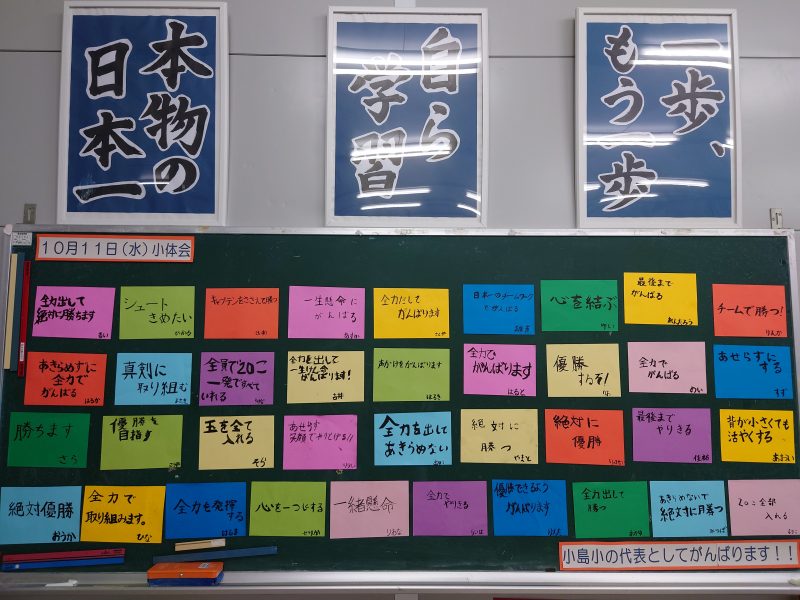 本物の
日本一
自ら
学習
一歩、
もう一歩
10月11日(水)小体会
全力出して
絶対に勝ちます
るい
シュート
きめたい
キャプテンをささえて勝つ
一生懸命に
がんばる
全力だして
がんばります
日本一のチームワーク
でがんばる
心を結ぶ
最後まで
がんばる
チームで勝つ!
りんか
あきらめずに
全力で
がんばる
はるか
真剣に
取り組む
全員で20こ
一発ですべて
いれる
全力を出して
一生けん命
がんばります!
声かけをがんばります
はるき
全力で
がんばります
はると
優勝
するぞ!
全力で
がんばる
めい
あせらずに
する
すず
勝ちます
さら
優勝を
目指す
玉を全て
入れる
そら
あせらず
笑顔でやりとげる!!
全力を出して
あきらめない
絶対に
勝つ
やまと
絶対に
優勝
最後まで
やりきる
背が小さくても
活やくする
絶対優勝
おうか
全力で
取り組みます。
ひな
全力を発揮
する
はるま
心を一つにする
一緒懸命
りおな
全力で
やりきる
優勝できるよう
がんばります
全力出して
勝つ
あきらめないで
絶対に月勝つ
20こ全部
入れる
小島小の代表としてがんばります!!